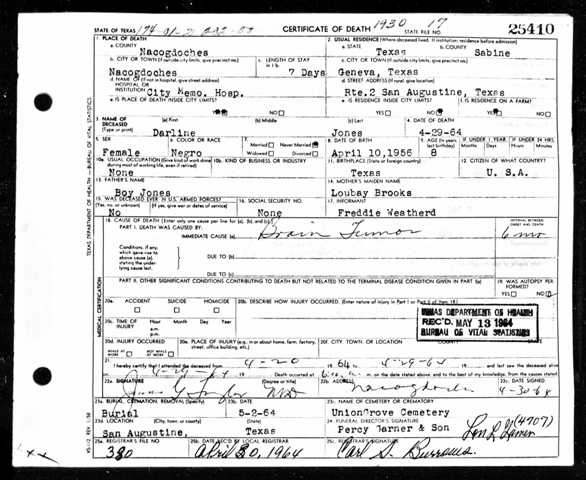 174-01-2
1930 17
STATE OF TEXAS
CERTIFICATE OF DEATH
STATE FILE NO.
25410
1. PLACE OF DEATH
a. COUNTY
Nacogdoches
2. USUAL RESIDENCE (Where deceased lived. If institution: residence before admission)
a. STATE
Texas
b. COUNTY
Sabine
b. CITY OR TOWN (If outside city limits, give precinct no.)
Nacogdoches
c. LENGTH OF STAY in 1 b.
7 Days
c. CITY OR TOWN (If outside city limits, give precinct no.)
Geneva, Texas
d. NAME OF (If not in hospital, give street address)
HOSPITAL OR
INSTITUTION
City Memo. Hosp.
d. STREET ADDRESS (If rural, give location)
Rte.2 San Augustine, Texas
e. IS PLACE OF DEATH INSIDE CITY LIMITS?
YES NO
e. IS RESIDENCE INSIDE CITY LIMITS?
YES NO
f. IS RESIDENCE ON A FARM?
YES NO
3. NAME OF DECEASED
(Type or print)
(a) First
Darline
(b) Middle
(c) Last
Jones
4. DATE OF DEATH
4-29-64
5. SEX
Female
6. COLOR OR RACE
Negro
7.
Married Never Married
Widowed Divorced
8. DATE OF BIRTH
April 10,1956
9. AGE (In years last birthday)
8
IF UNDER 1 YEAR
Months Days
IF UNDER 24 HRS.
Hours Min.
10a. USUAL OCCUPATION (Give kind of work done during most of working life, even if retired)
None
10b. KIND OF BUSINESS OR INDUSTRY
11. BIRTHPLACE (State or foreign country)
Texas
12. CITIZEN OF WHAT COUNTRY?
U. S.A.
13. FATHER'S NAME
Boy Jones
14. MOTHER'S MAIDEN NAME
Loubay Brooks
15. WAS DECEASED EVER IN U.S. ARMED FORCES?
(Yes, no or unknown) (If yes, give war or dates of service)
No
16. SOCIAL SECURITY NO.
None
17. INFORMANT
Freddie Weatherd
18. CAUSE OF DEATH [Enter only one cause per line for (a), (b), and (c).]
PART I. DEATH WAS CAUSED BY:
IMMEDIATE CAUSE (a)
Brain Tumor
INTERVAL BETWEEN ONSET AND DEATH
6 mo
Conditions, if any, which gave rise to above cause (a), stating the underlying cause last.
DUE TO (b)
DUE TO (c)
PART II. OTHER SIGNIFICANT CONDITIONS CONTRIBUTING TO DEATH BUT NOT RELATED TO THE TERMINAL DISEASE CONDITION GIVEN IN PART I(a)
19. WAS AUTOPSY PERFORMED?
YES NO
20a. ACCIDENT SUICIDE HOMICIDE
20b. DESCRIBE HOW INJURY OCCURRED. (Enter nature of injury in Part I or Part II of item 18.)
20c. TIME OF INJURY
Hour Month Day Year
a.m.
p.m.
TEXAS DEPARTMENT OF HEALTH
REC'D MAY 13 1964
BUREAU OF VITAL STATISTICS
20d. INJURY OCCURRED
WHILE AT WORK NOT WHILE AT WORK
20e. PLACE OF INJURY (e.g., in or about home, farm, factory, street, office building, etc.)
20f. CITY, TOWN, OR LOCATION
COUNTY STATE
I hereby certify that I attended the deceased from 4-20 64 to 4-29-64 and last saw the deceased alive
Death occurred at m. on the date stated above, and to the best of my knowledge, from the causes stated.
22a. SIGNATURE
(Degree or title)
MD
22b. ADDRESS
Nacogdoches
22c. DATE SIGNED
4-30-64
23a. BURIAL, CREMATION, REMOVAL (Specify)
Burial
23b. DATE
5-2-64
23c. NAME OF CEMETERY OR CREMATORY
UnionGrove Cemetery
23d. LOCATION (City, town, or county) (State)
San Augustine, Texas
24. FUNERAL DIRECTOR'S SIGNATURE
Percy Garner & Son
(4707)
25a. REGISTRAR'S FILE NO.
380
25b. DATE REC'D BY LOCAL REGISTRAR
April 30, 1964
25c. REGISTRAR'S SIGNATURE
Carl S. Burrows
TEXAS DEPARTMENT OF HEALTH — BUREAU OF VITAL STATISTICS
MEDICAL CERTIFICATION